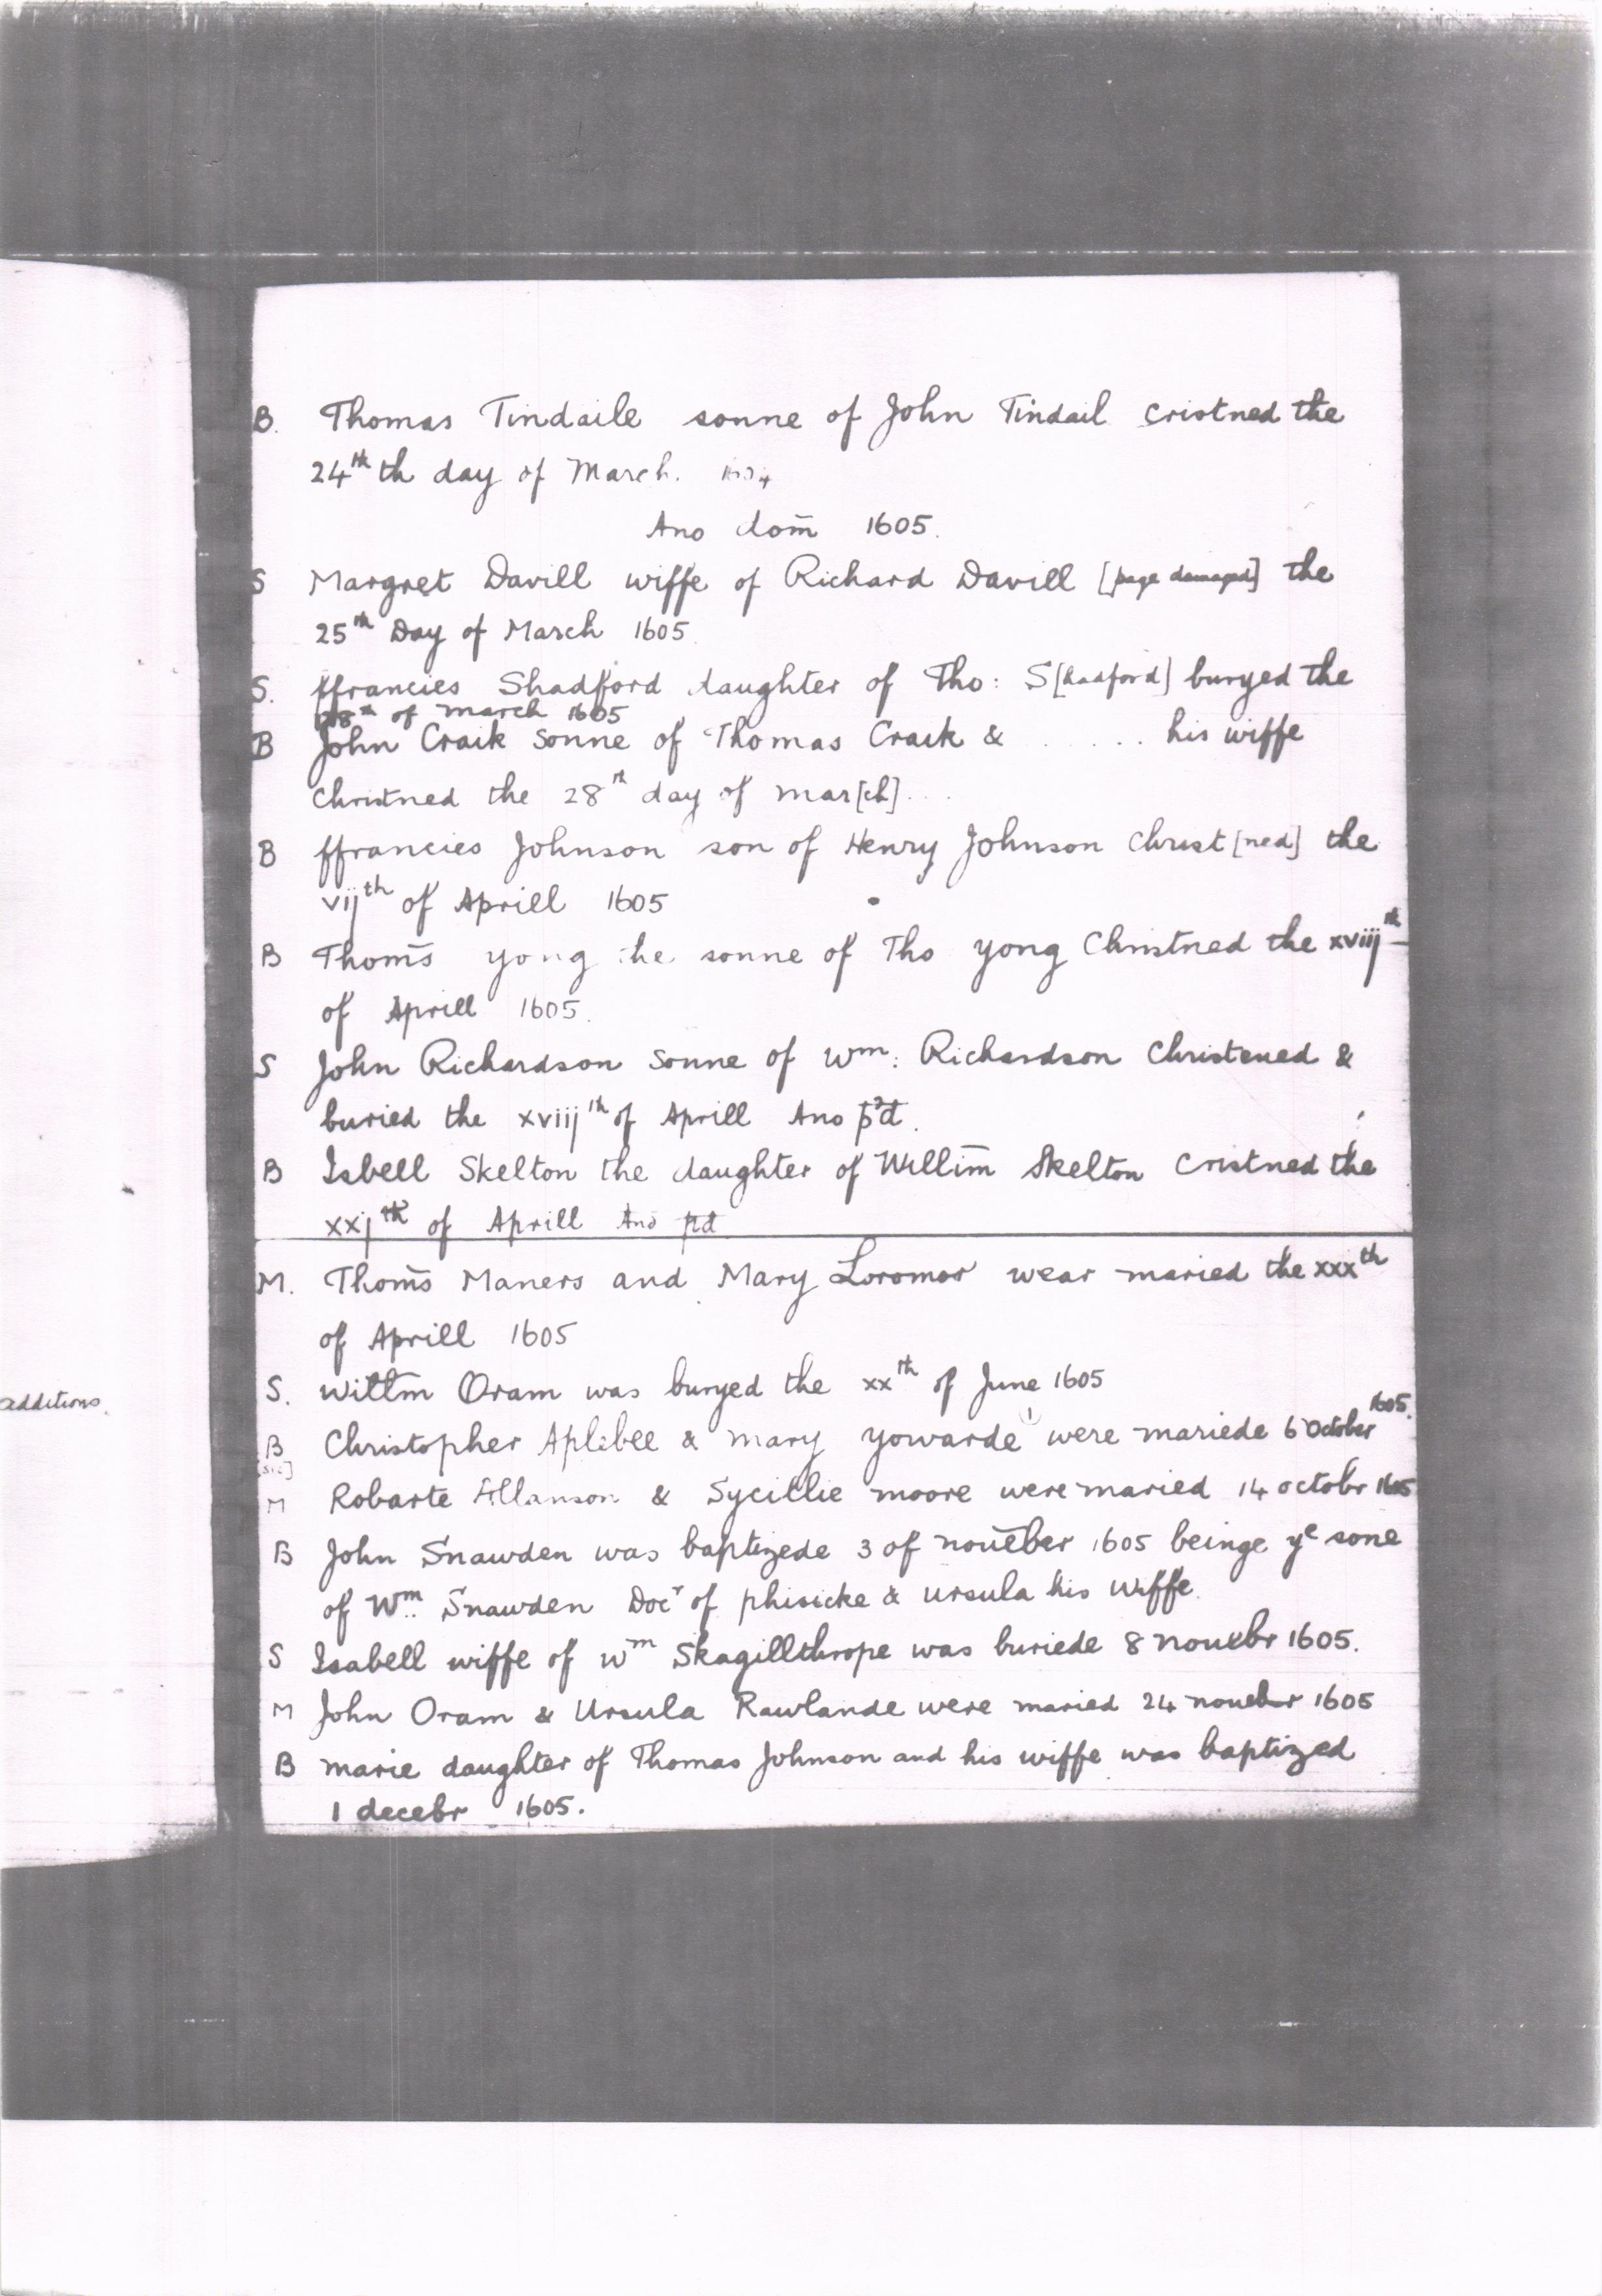 B. Thomas Tindaile sonne of John Tindail cristned the
24th th day of March.
Ano dom̄ 1605.
S Margret Davill wiffe of Richard Davill [page damaged] the
25th Day of March 1605
S. ffrancies Shadfford daughter of Tho: S[hadford] buryed the
of march 1605
B John Craik sonne of Thomas Craik & ..... his wiffe
Christned the 28th day of mar[ch]...
B ffrancies Johnson son of Henry Johnson Christ[ned] the
vijth of Aprill 1605
B Thom̄s yong the sonne of Tho yong Christned the xviijth
of Aprill 1605.
S John Richardson sonne of Wm: Richardson Christened &
buried the xviijth of Aprill Ano pd.
B Isbell Skelton the daughter of Willim̄ Skelton Cristned the
xxjth of Aprill Ano pd
M. Thom̄s Maners and Mary Loromor wear maried the xxxth
of Aprill 1605
S. Willm Oram was buryed the xxth of June 1605
additions.
1605.
B Christopher Aplebee & mary yowarde were mariede 6 October
[sic]
M Robarte Allanson & Sycillie moore were maried 14 octobr 1605
B John Snawden was baptizede 3 of nouēber 1605 beinge ye sone
of Wm: Snawden Docr of phisicke & Ursula his wiffe.
S Isabell wiffe of Wm Skagillthrope was buriede 8 nouebr 1605.
M John Oram & Ursula Rawlande were maried 24 nouebr 1605
B marie daughter of Thomas Johnson and his wiffe was baptized
1 decebr 1605.